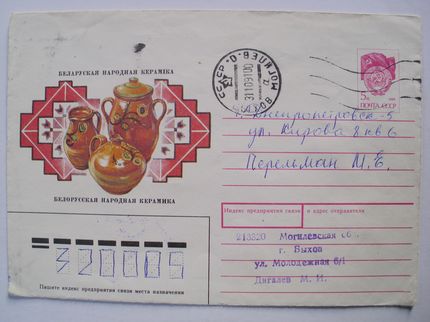 БЕЛАРУСКАЯ НАРОДНАЯ КЕРАМІКА
БЕЛОРУССКАЯ НАРОДНАЯ КЕРАМИКА
СССР
5к
ПОЧТА СССР
г. Днепропетровск-5
ул. Кирова 8 кв 6
Перельман М. Е.
Индекс предприятия связи и адрес отправителя
213320 Могилевская
г. Быхов
ул. Молодежная 6/1
Дигалев М. И.
320009
Пишите индекс предприятия связи места назначения